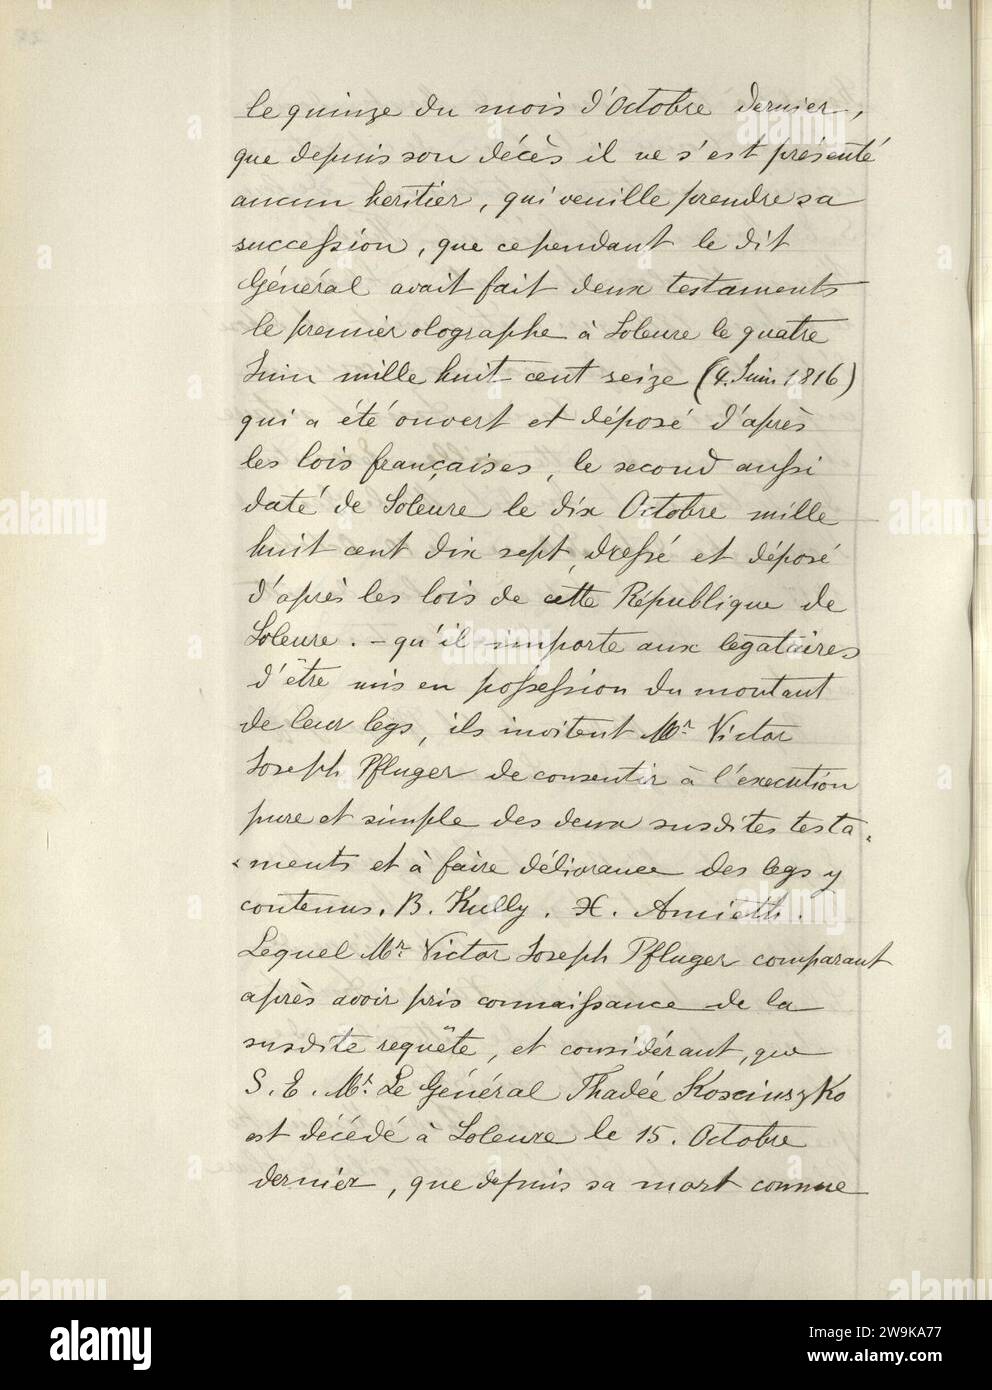 le quinze du mois d'Octobre dernier,
que depuis son décès il ne s'est présenté
aucun heritier, qui veuille prendre sa
succession, que cependant le dit
Général avait fait deux testaments
le premier olographe à Soleure le quatre
Juin mille huit cent seize (4. Juin 1816)
qui a été ouvert et déposé d'après
les lois françaises, le second aussi
daté de Soleure le dix Octobre mille
huit cent dix sept, dressé et déposé
d'après les lois de cette République de
Soleure. – qu'il importe aux légataires
d'être mis en possession du montant
de leur legs, ils invitent Mr. Victor
Joseph Pfluger de consentir à l'execution
pure et simple des deux susdites testa-
ments et à faire délivrance des legs y
contenus. B. Kully. X. Amieth.
Lequel Mr. Victor Joseph Pfluger comparant
après avoir pris connaissance de la
susdite requête, et considérant, que
S. E. Mr. Le Général Thadée Kosciuszko
est décédé à Soleure le 15. Octobre
dernier, que depuis sa mort comme
alamy
Image ID: W9KA77
www.alamy.com